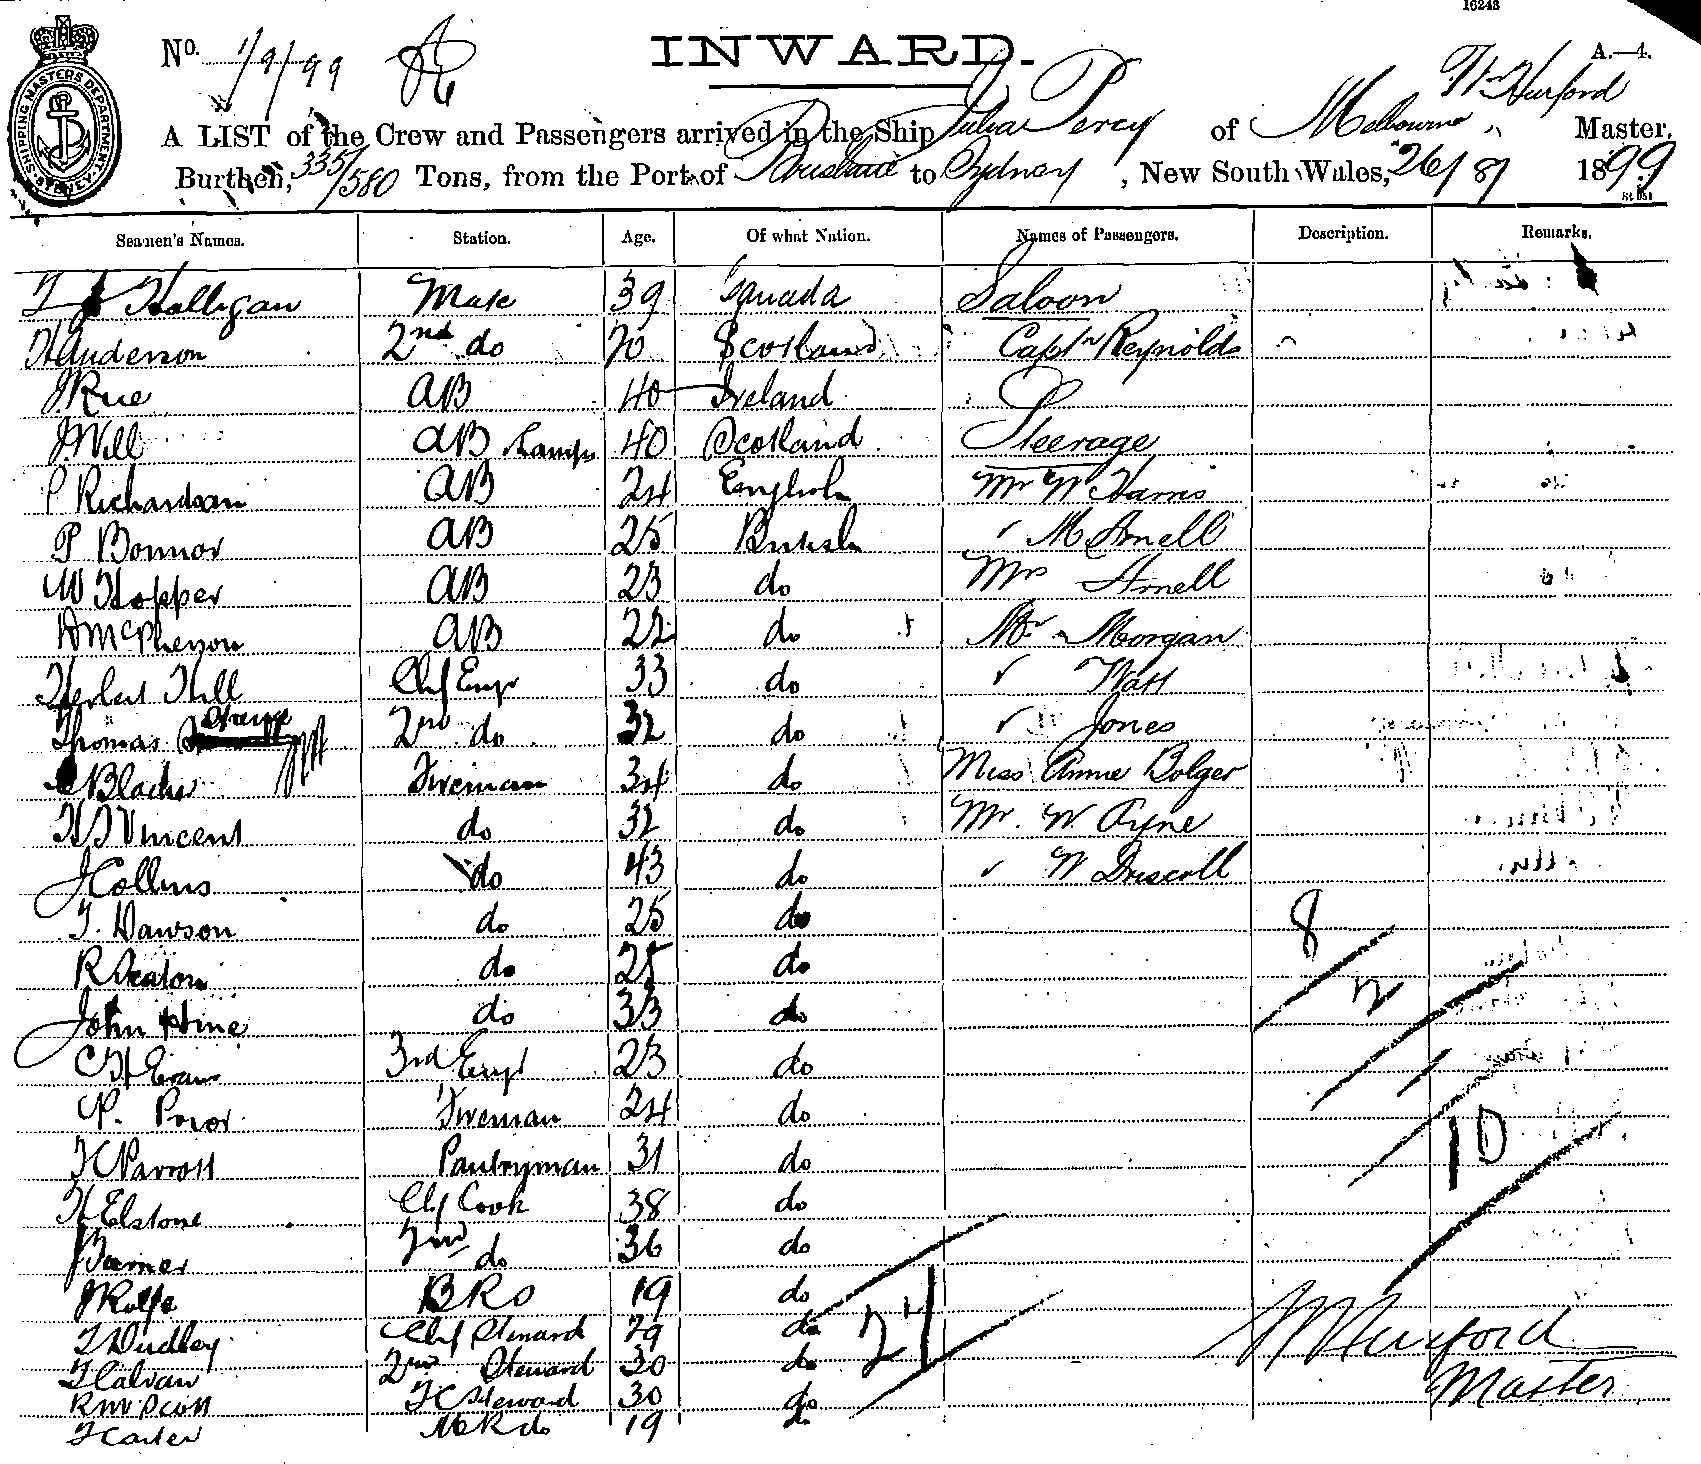 16243
No. 1/9/99
INWARD.
A.—4.
SHIPPING MASTERS DEPARTMENT SYDNEY
W Hurford
A LIST of the Crew and Passengers arrived in the Ship Julia Percy of Melbourne, Master,
Burthen, 335/580 Tons, from the Port of Brisbane to Sydney, New South Wales, 26/8/ 1899
Seamen's Names. Station. Age. Of what Nation. Names of Passengers. Description. Remarks.
Halligan Mate 39 Canada Saloon
H Anderson 2nd do 70 Scotland Captn Reynolds
J Rue AB 40 Ireland
J Will AB Lamps 40 Scotland Steerage
P Richardson AB 24 English Mr W Harris
P Bonnor AB 25 British " M Arnell
W Hopper AB 23 do Mrs Arnell
D McPherson AB 22 do Mr Morgan
Herbert Hill Chf Engr 33 do " Watt
Thomas 2nd do 32 do " Jones
Blacker Fireman 34 do Miss Annie Bolger
H J Vincent do 32 do Mr. W. Pyne
J Collins do 43 do " W Driscoll
T. Dawson do 25 do 8
R Deaton do 25 do
John Hine do 33 do
C H Evans 3rd Engr 23 do 1
P. Prior Fireman 24 do 10
F C Parrott Pantryman 31 do
H Elstone Chf Cook 38 do
J Turner 2nd do 36 do
J Rolfe BRS 19 do
T Dudley Chf Steward 29 do 27 W Hurford
T Calvan 2nd Steward 30 do
R W Scott FC Steward 30 do Master
F Carter do 19 do